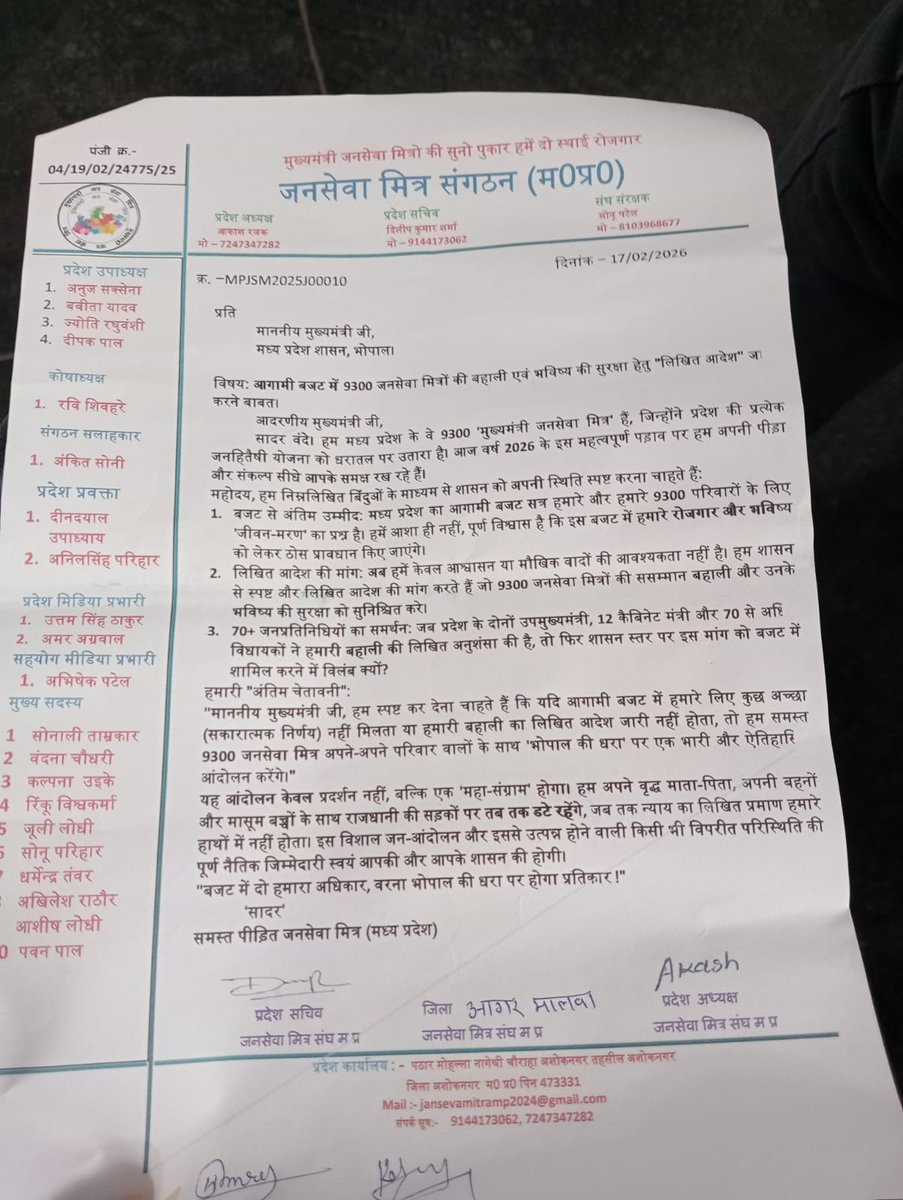 पंजी क्र.-
04/19/02/24775/25
मुख्यमंत्री जनसेवा मित्रो की सुनो पुकार हमें दो स्थाई रोजगार
जनसेवा मित्र संगठन (म0प्र0)
प्रदेश अध्यक्ष
आकाश रजक
मो – 7247347282
प्रदेश सचिव
दिलीप कुमार शर्मा
मो – 9144173062
संघ संरक्षक
सोनू पटेल
मो – 8103968677
प्रदेश उपाध्यक्ष
1. अनुज सक्सेना
2. बबीता यादव
3. ज्योति रघुवंशी
4. दीपक पाल
कोषाध्यक्ष
1. रवि शिवहरे
संगठन सलाहकार
1. अंकित सोनी
प्रदेश प्रवक्ता
1. दीनदयाल
उपाध्याय
2. अनिलसिंह परिहार
प्रदेश मिडिया प्रभारी
1. उत्तम सिंह ठाकुर
2. अमर अग्रवाल
सहयोग मीडिया प्रभारी
1. अभिषेक पटेल
मुख्य सदस्य
1 सोनाली ताम्रकार
2 वंदना चौधरी
3 कल्पना उइके
4 रिंकू विश्वकर्मा
5 जूली लोधी
सोनू परिहार
धर्मेन्द्र तंवर
अखिलेश राठौर
आशीष लोधी
0 पवन पाल
क्र. –MPJSM2025J00010
दिनांक – 17/02/2026
प्रति
माननीय मुख्यमंत्री जी,
मध्य प्रदेश शासन, भोपाल।
विषय: आगामी बजट में 9300 जनसेवा मित्रों की बहाली एवं भविष्य की सुरक्षा हेतु "लिखित आदेश" जा
करने बाबत।
आदरणीय मुख्यमंत्री जी,
सादर वंदे। हम मध्य प्रदेश के वे 9300 'मुख्यमंत्री जनसेवा मित्र' हैं, जिन्होंने प्रदेश की प्रत्येक
जनहितैषी योजना को धरातल पर उतारा है। आज वर्ष 2026 के इस महत्वपूर्ण पड़ाव पर हम अपनी पीड़ा
और संकल्प सीधे आपके समक्ष रख रहे हैं।
महोदय, हम निम्नलिखित बिंदुओं के माध्यम से शासन को अपनी स्थिति स्पष्ट करना चाहते हैं:
1. बजट से अंतिम उम्मीद: मध्य प्रदेश का आगामी बजट सत्र हमारे और हमारे 9300 परिवारों के लिए
'जीवन-मरण' का प्रश्न है। हमें आशा ही नहीं, पूर्ण विश्वास है कि इस बजट में हमारे रोजगार और भविष्य
को लेकर ठोस प्रावधान किए जाएंगे।
2. लिखित आदेश की मांग: अब हमें केवल आश्वासन या मौखिक वादों की आवश्यकता नहीं है। हम शासन
से स्पष्ट और लिखित आदेश की मांग करते हैं जो 9300 जनसेवा मित्रों की ससम्मान बहाली और उनके
भविष्य की सुरक्षा को सुनिश्चित करे।
3. 70+ जनप्रतिनिधियों का समर्थन: जब प्रदेश के दोनों उपमुख्यमंत्री, 12 कैबिनेट मंत्री और 70 से अधि
विधायकों ने हमारी बहाली की लिखित अनुशंसा की है, तो फिर शासन स्तर पर इस मांग को बजट में
शामिल करने में विलंब क्यों?
हमारी "अंतिम चेतावनी":
"माननीय मुख्यमंत्री जी, हम स्पष्ट कर देना चाहते हैं कि यदि आगामी बजट में हमारे लिए कुछ अच्छा
(सकारात्मक निर्णय) नहीं मिलता या हमारी बहाली का लिखित आदेश जारी नहीं होता, तो हम समस्त
9300 जनसेवा मित्र अपने-अपने परिवार वालों के साथ 'भोपाल की धरा' पर एक भारी और ऐतिहासि
आंदोलन करेंगे।"
यह आंदोलन केवल प्रदर्शन नहीं, बल्कि एक 'महा-संग्राम' होगा। हम अपने वृद्ध माता-पिता, अपनी बहनों
और मासूम बच्चों के साथ राजधानी की सड़कों पर तब तक डटे रहेंगे, जब तक न्याय का लिखित प्रमाण हमारे
हाथों में नहीं होता। इस विशाल जन-आंदोलन और इससे उत्पन्न होने वाली किसी भी विपरीत परिस्थिति की
पूर्ण नैतिक जिम्मेदारी स्वयं आपकी और आपके शासन की होगी।
"बजट में दो हमारा अधिकार, वरना भोपाल की धरा पर होगा प्रतिकार !"
'सादर'
समस्त पीड़ित जनसेवा मित्र (मध्य प्रदेश)
प्रदेश सचिव
जनसेवा मित्र संघ म प्र
जिला आगर मालवा
जनसेवा मित्र संघ म प्र
Akash
प्रदेश अध्यक्ष
जनसेवा मित्र संघ म प्र
प्रदेश कार्यालय : - पठार मोहल्ला नागेश्री चौराहा अशोकनगर तहसील अशोकनगर
जिला अशोकनगर म0 प्र0 पिन 473331
Mail :- jansevamitramp2024@gmail.com
संपर्क सूत्र:- 9144173062, 7247347282